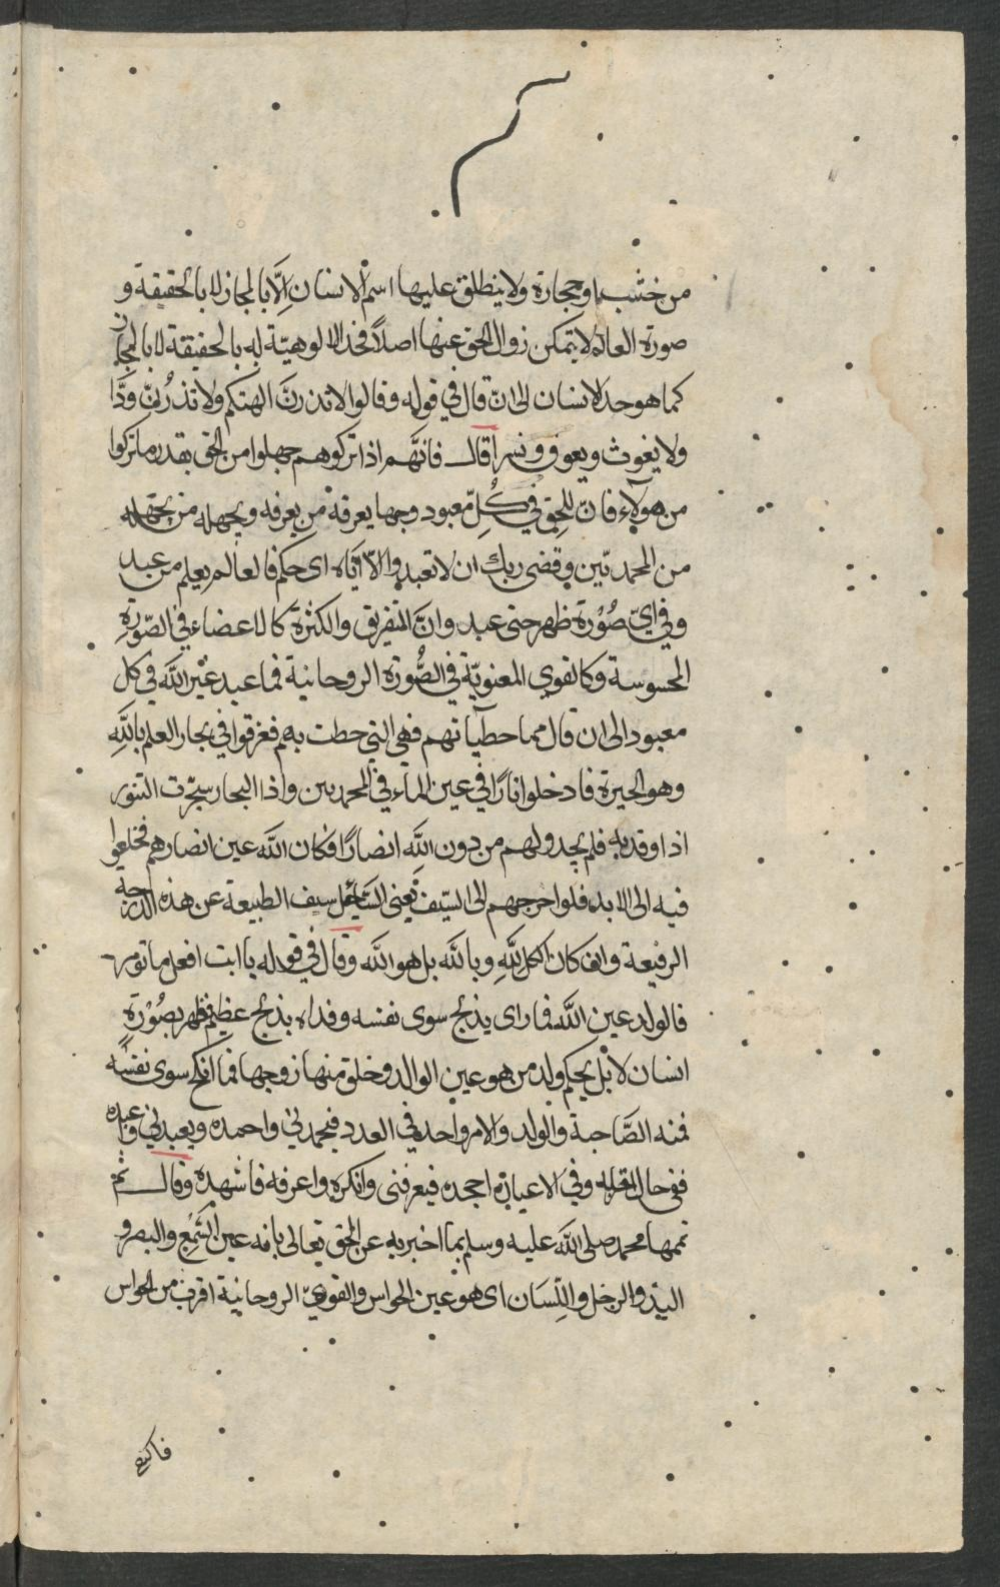 من خشب او حجارة ولا ينطلق عليها اسم الانسان الّا بالمجاز لا بالحقيقة و
صورة العالم لا يتمكن زوال الحق عنها اصلاً فحد الالوهيّة له بالحقيقة لا بالمجاز
كما هو حد الانسان الى ان قال في قوله وقالوا لا تذرنّ الهتكم ولا تذرنّ ودّا
ولا يغوث ويعوق ونسراً قال فانّهم اذا تركوهم جهلوا من الحق بقدر ما تركوا
من هولآء فان للحق في كلّ معبود وجها يعرفه من يعرفه ويجهله من يجهله
من المحمديّين وقضى ربك ان لا تعبدوا الّا ايّاه اى حكم فالعالم يعلم من عبد
وفي ايّ صُوْرة ظهر حتى عبد وانّ التفريق والكثرة كالاعضاء في الصّورة
المحسوسة وكالقوى المعنويّة في الصُّورة الروحانية فما عبد غيْر اللّه في كل
معبود الى ان قال مما خطيآتهم فهي التي خطت بهم فغرقوا في بحار العلم باللّهِ
وهو الحيرة فادخلوا نارًا في عين المآء في المحمديين واذا البحار سجّرت التنور
اذا اوقد به فلم يجدوا لهم من دون اللّه انصارًا فكان اللّه عين انصارهم فخلعوا
فيه الى الابد فلو اخرجهم الى السّيف يعنى السّاحل سيف الطبيعة عن هذه الدرجة
الرفيعة وان كان الكل للّهِ وباللّه بل هو اللّه وقال في قوله يا ابت افعل ما تومر
فالولد عين اللّه فما راى يذبح سوى نفسه وفداه بذبح عظيم فظهر بصُوْرة
انسان لا بل بحكم ولد من هو عين الوالد وخلق منها زوجها فما نكح سوى نفسه
فمنه الصّاحبة والولد والامر واحد في العدد فيحمدنى واحمده ويعبدنى واعبده
ففى حال اقر به وفي الاعيان احجده فيعرفنى وانكره واعرفه فاشهده وقال ثم
تممها محمد صلى اللّه عليه وسلم بما اخبر به عن الحق تعالى بانه عين السّمْع والبصر و
اليَد والرجل واللِّسَان اى هو عين الحواس والقوى الروحانية اقرب من الحواس